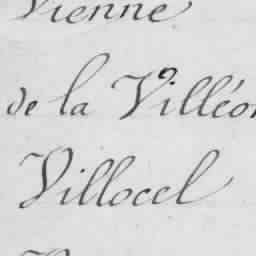 Vienne
de la Villéon
Villocel